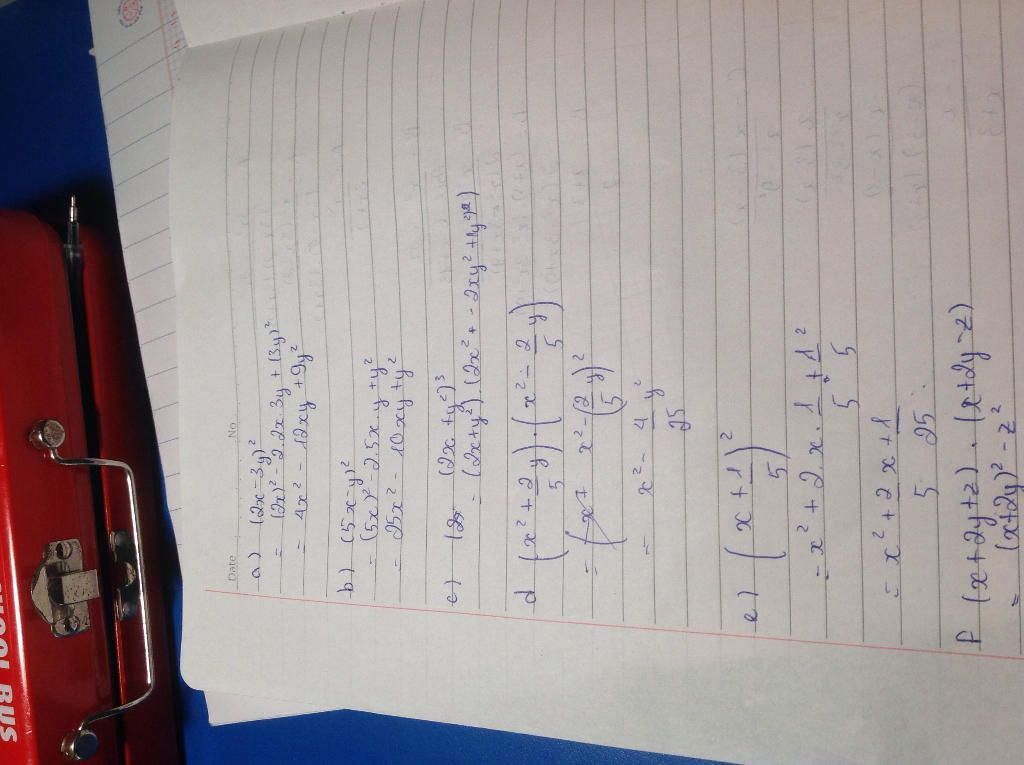 Date No
a) (2x-3y)²
= (2x)² - 2.2x.3y + (3y)²
= 4x² - 12xy + 9y²
b) (5x-y)²
= (5x)² - 2.5x.y + y²
= 25x² - 10xy + y²
c) (2x (2x + y²)³
= (2x+y²).(2x² + - 2xy² + (y²)²)
d (x² + 2/5 y) . (x² - 2/5 y)
= (x+ x² - (2/5 y)²
= x² - 4/25 y²
e) (x + 1/5)²
= x² + 2.x.1/5 + 1²/5
= x² + 2/5 x + 1/25
f (x + 2y + z) . (x + 2y - z)
= (x+2y)² - z²
SCHOOL BUS